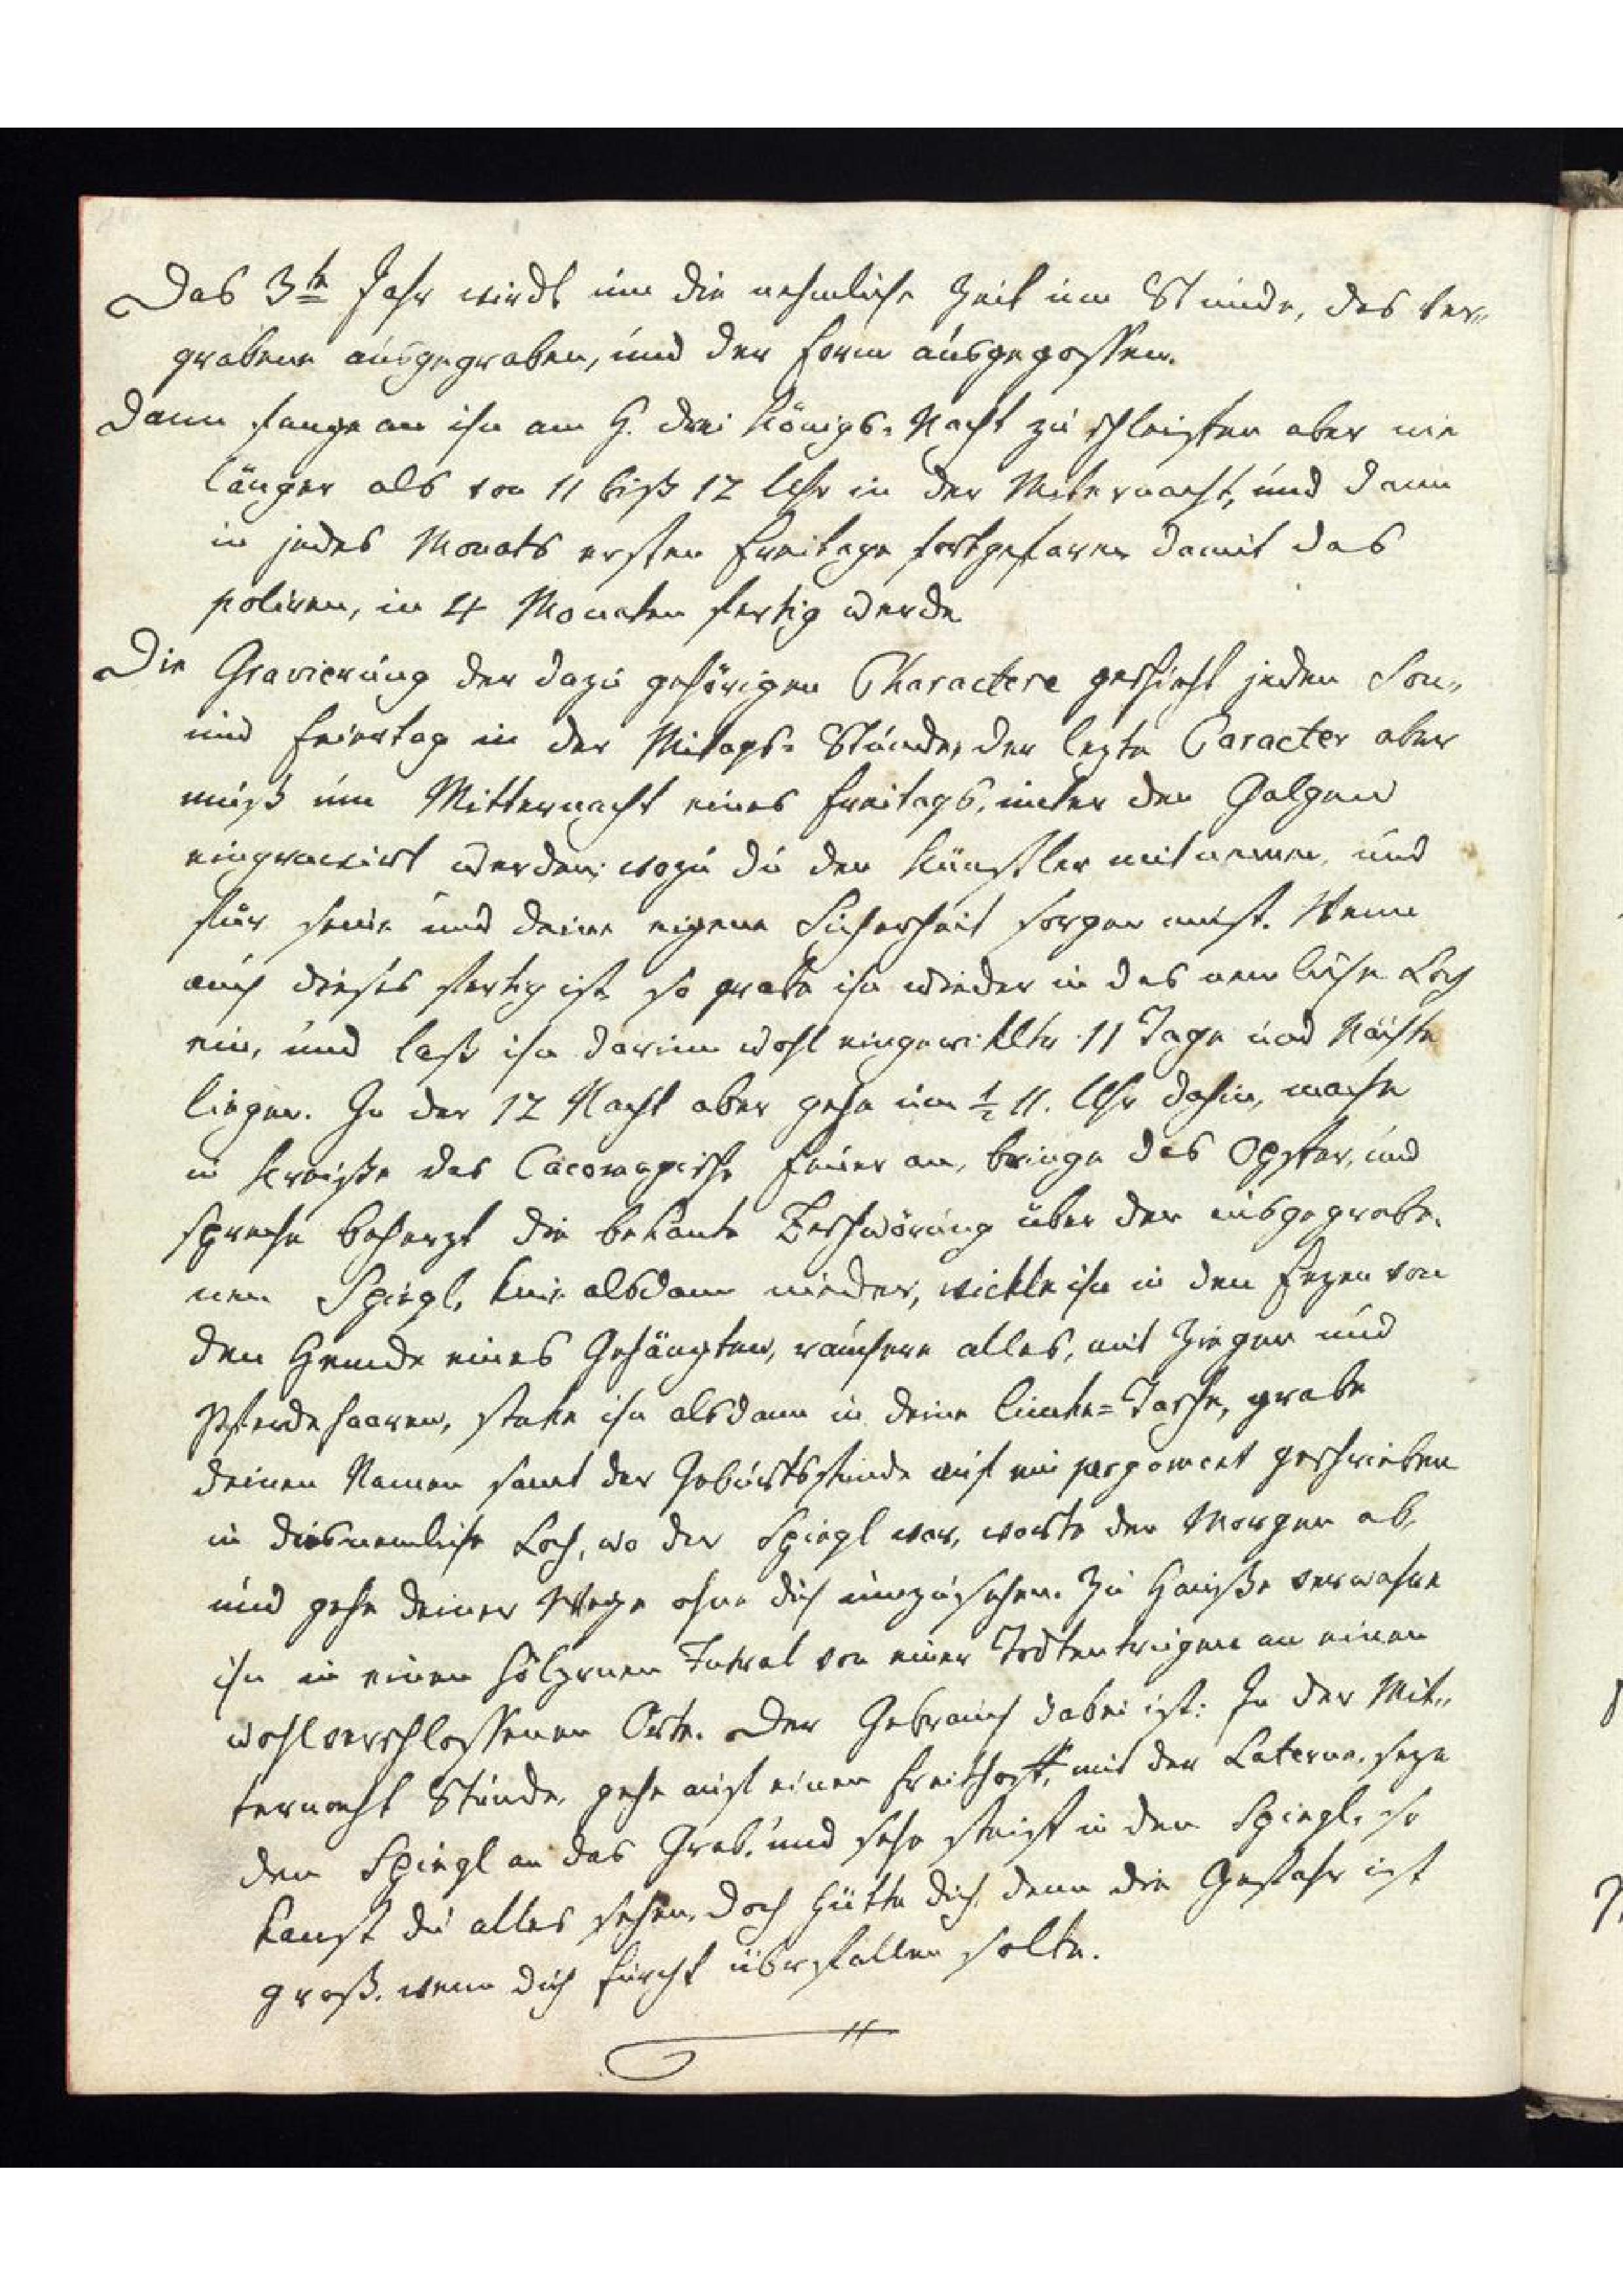 Das 3te Jahr wirdt um die nehmliche Zeit um Stunde, das ver„
grabene ausgegraben, und der Form ausgegossen.
Dann fange an ihn am H. drei Königs-Nacht zu schleiffen aber nie
länger als von 11 biß 12 Uhr in der Miternacht, und dann
in jedes Monats ersten Freitage fortgefaren damit das
poliren, in 4 Monaten fertig werde
Die Gravierung der dazu gehörigen Charactere geschieht jeden Son„
und Feiertag in der Mitags-Stunde, der lezte Caracter aber
muß um Mitternacht eines Freitags, unter den Galgen
eingravirt werden, wozu du den Künstler mitnemen, und
für seine und deine eigene Sicherheit sorgen must. Wenn
auch dieses fertig ist, so grabe ihn wieder in das nemliche Loch
ein, und laß ihn darinn wohl eingewiklter 11 Tage und Nächte
liegen. In der 12 Nacht aber gehe um ½ 11. Uhr dahin, mache
in Kreiße das Cacomagische Feuer an, bringe das Opffer, und
spreche beherzt die bekante Beschwörung über den ausgegrabe-
nen Spiegl, knie alsdann nieder, wickle ihn in den Fezen von
den Hemde eines Gehängten, räuchere alles, mit Ziegen und
Pferdehaaren, steke ihn alsdann in deine linke-Tasche, grabe
deinen Namen samt der Geburtsstunde auf ein pergament geschrieben
in das nemliche Loch, wo der Spiegl war, warte den Morgen ab,
und gehe deiner Wege ohne dich umzusehen. Zu Hauße verwahre
ihn in einen hölzernen Futral von einer Todtentrugen an einen
wohlverschlossenen Orte. Der Gebrauch dabei ist: In der Mit„
ternacht Stunde, gehe auf einen Freithoff, mit der Laterne, seze
den Spiegl an das Grab, und sehe steiff in den Spiegl, so
kanst du alles sehen, doch hütte dich, denn die Gefahr ist
groß, wenn dich Furcht überfallen solte.